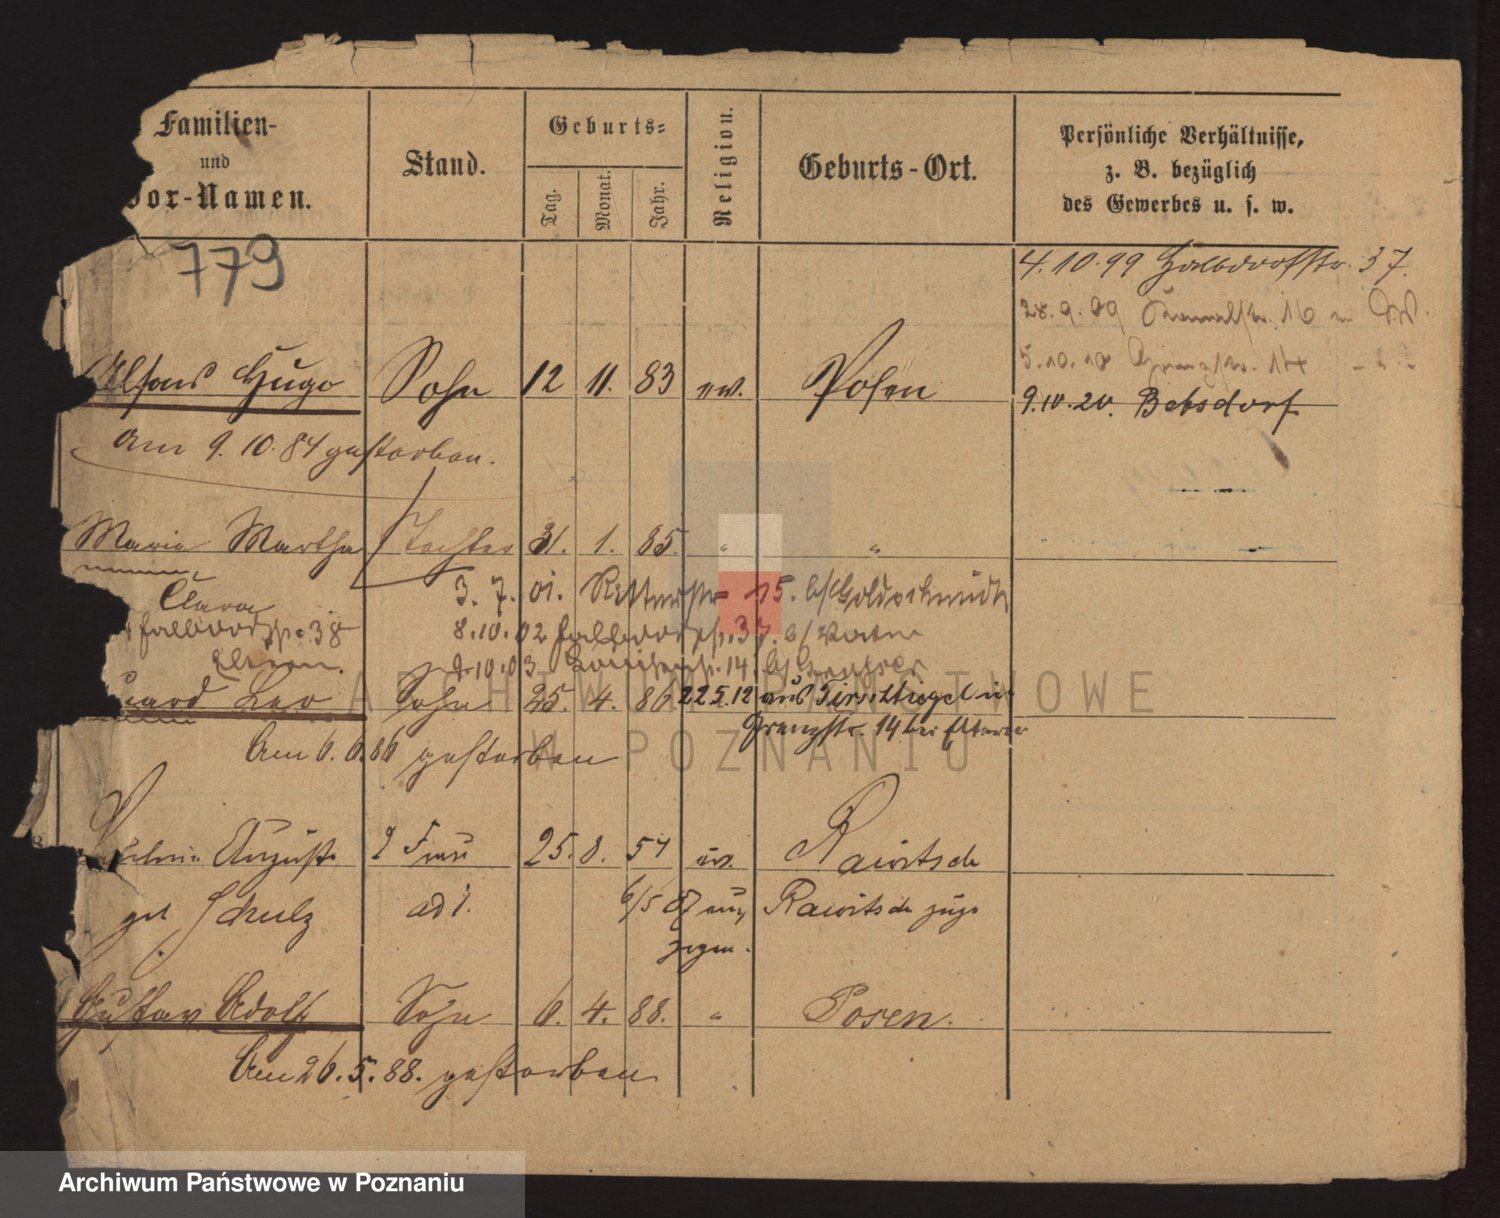 Familien-
und
Vor-Namen.
Stand.
Geburts-
Tag.
Monat.
Jahr.
Religion.
Geburts-Ort.
Persönliche Verhältnisse,
z. B. bezüglich
des Gewerbes u. s. w.
779
4.10.99 Halbdorfstr. 37.
28.9.09 16
5.10.10 Grenzstr. 14
Alfons Hugo Sohn 12 11. 83 ev. Posen
9.10.20. Betsdorf
Am 9.10.84 gestorben.
Maria Martha Tochter 31. 1. 85 " "
Clara
3. 7. 01. Ritterstr 15. b/ Goldschmidt
Halbdorfstr. 38
8.10.02 Halbdorfstr. 37. b/ Vater
Eltern.
2.10.03 14. b/
Leo Sohn 25. 4. 86. 22.5.12 aus Tirschtiegel in
Grenzstr. 14 bei Eltern
Am 6.6.86 gestorben
ARCHIWUM PAŃSTWOWE
W POZNANIU
Auguste 2 Frau 25. 8. 57 ev. Rawitsch
geb Schulz ad 1. 6/5 87 aus Rawitsch zuge
zogen.
Gustav Adolf Sohn 6. 4. 88. " Posen.
Am 26.5.88. gestorben
Archiwum Państwowe w Poznaniu